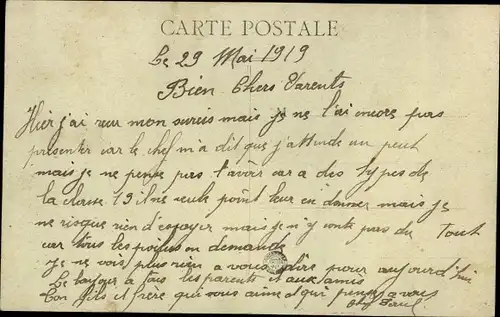 CARTE POSTALE
Le 29 Mai 1919
Bien Chers Parents
Hier j'ai reçu mon sursis mais je ne l'ai encore pas
présenter car le chef m'a dit que j'attende un peut
mais je ne pense pas l'avoir car a des types de
la classe 19 il ne veule point leur en donner mais je
ne risque rien d'essayer mais je n'y conte pas du Tout
car tous les poilus on demande
je ne vois plus rien a vous dire pour aujourd'hui
Le bonjour a tous les parents et aux amis
Ton fils et frère qui vous aime et qui pense a vous